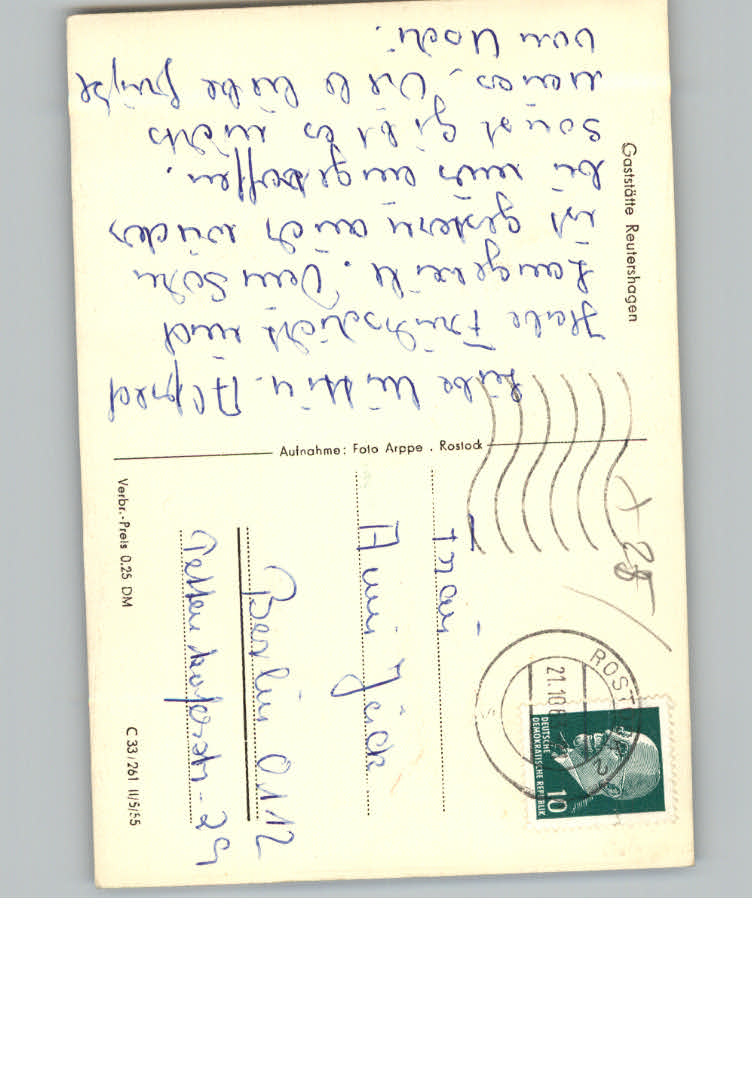 Gaststätte Reutershagen
Liebe Mutti u. Alfred
Habe Frühschicht und
Langeweile. Dein Sohn
ist gestern auch wieder
bei mir eingetroffen.
Sonst gibt es nichts
neues. Viele liebe Grüße
von Uschi.
Aufnahme: Foto Arppe . Rostock
ROST
21.10.6
DEUTSCHE
DEMOKRATISCHE REPUBLIK
10
Frau
Anni Jäck
Berlin O 112
Pettenkoferstr. 29
Verbr.-Preis 0.25 DM
C 33/261 II/5/55